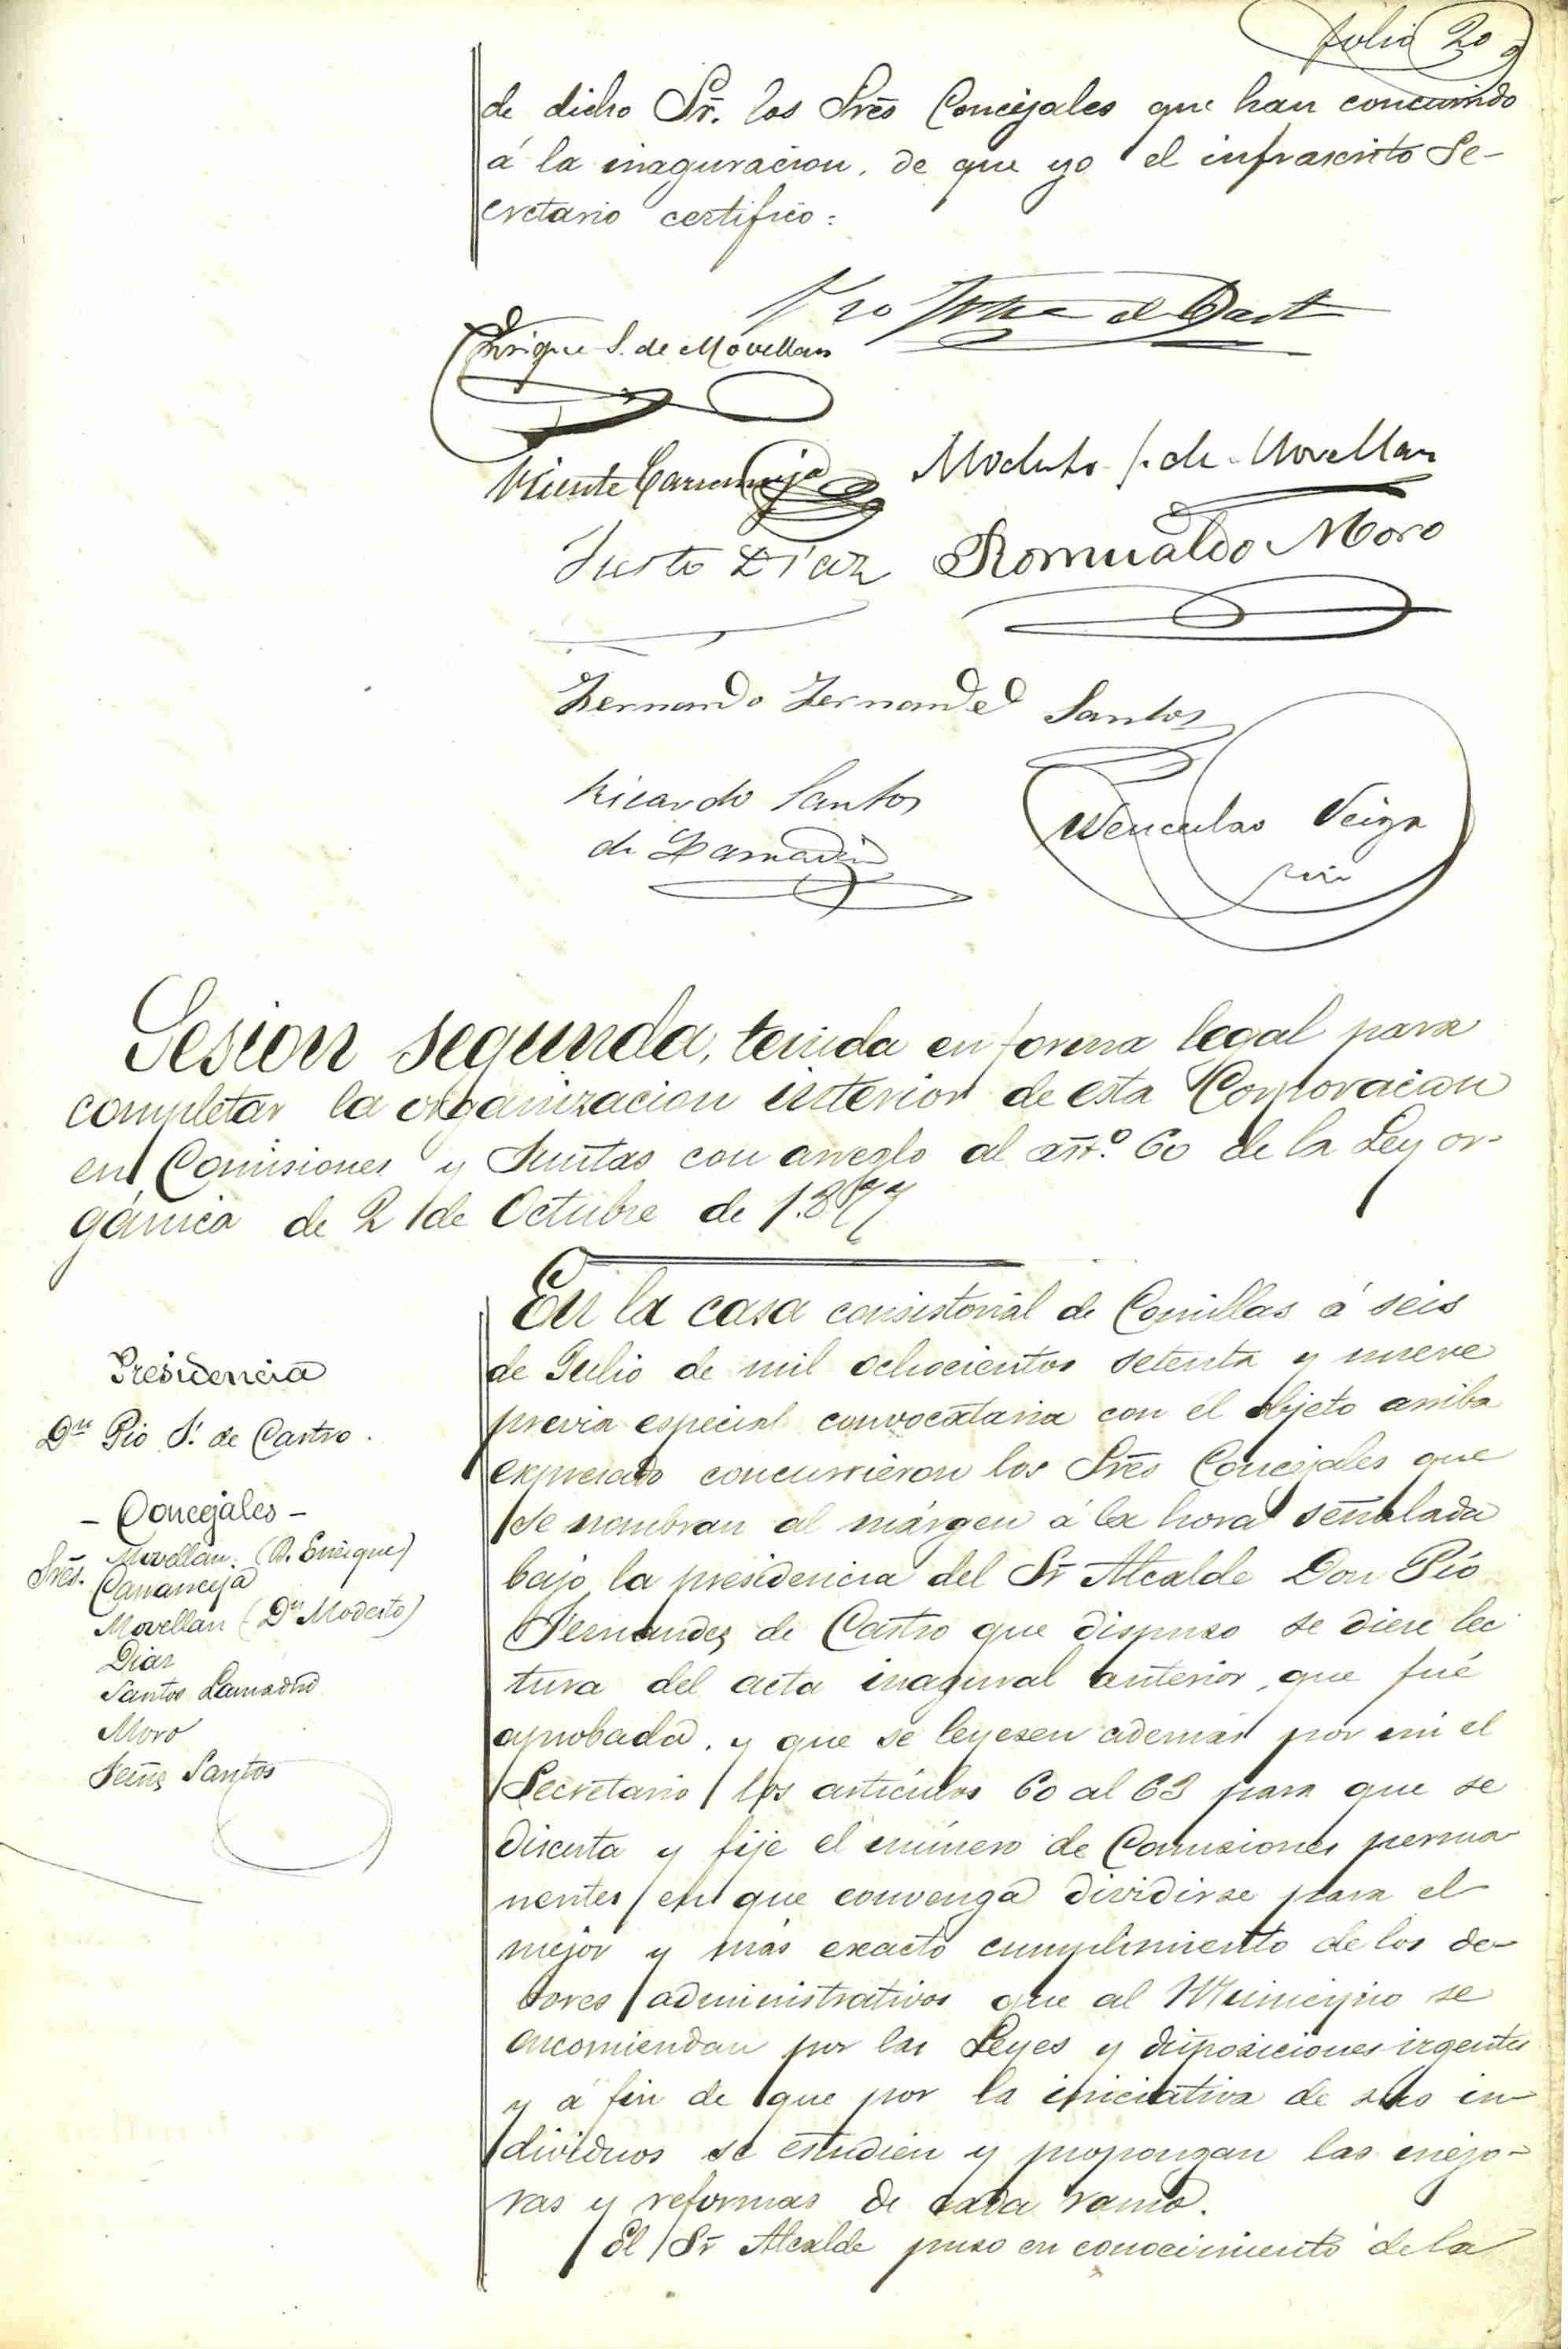 Folio 20
de dicho Sr. los Sres Concejales que han concurrido
á la inaguracion, de que yo el infrascrito Se-
cretario certifico:
Pio Fdez de Cast
Enrique S. de Movellan
Vicente Carranceja
Modesto S. de Movellan
Justo Díaz
Romualdo Moro
Fernando Fernandez Santos
Ricardo Santos
de Lamadrid
Wenceslao Veiga
Srio
Sesion segunda, tenida en forma legal para
completar la organizacion interior de esta Corporacion
en Comisiones y Juntas con arreglo al art.º 60 de la Ley or-
gánica de 2 de Octubre de 1.877
Presidencia
Dn Pio F. de Castro.
- Concejales -
Sres. Movellan. (D. Enrique)
Carranceja
Movellan (Dn Modesto)
Diaz
Santos Lamadrid
Moro
Fernz Santos
En la casa consistorial de Comillas á seis
de Julio de mil ochocientos setenta y nueve
previa especial convocatoria con el objeto arriba
expresado concurrieron los Sres Concejales que
se nombran al márgen á la hora señalada
bajo la presidencia del Sr Alcalde Don Pío
Fernandez de Castro que dispuso se diese lec
tura del acta inagural anterior, que fué
aprobada. y que se leyesen ademas por mi el
Secretario los articulos 60 al 63 para que se
discuta y fije el número de Comisiones perma
nentes en que convenga dividirse para el
mejor y más exacto cumplimiento de los de-
bores administrativos que al Municipio se
encomiendan por las Leyes y disposiciones vigentes
y á fin de que por la iniciativa de sus in-
dividuos se estudien y propongan las mejo-
ras y reformas de cada ramo.
El Sr Alcalde puso en conocimiento de la